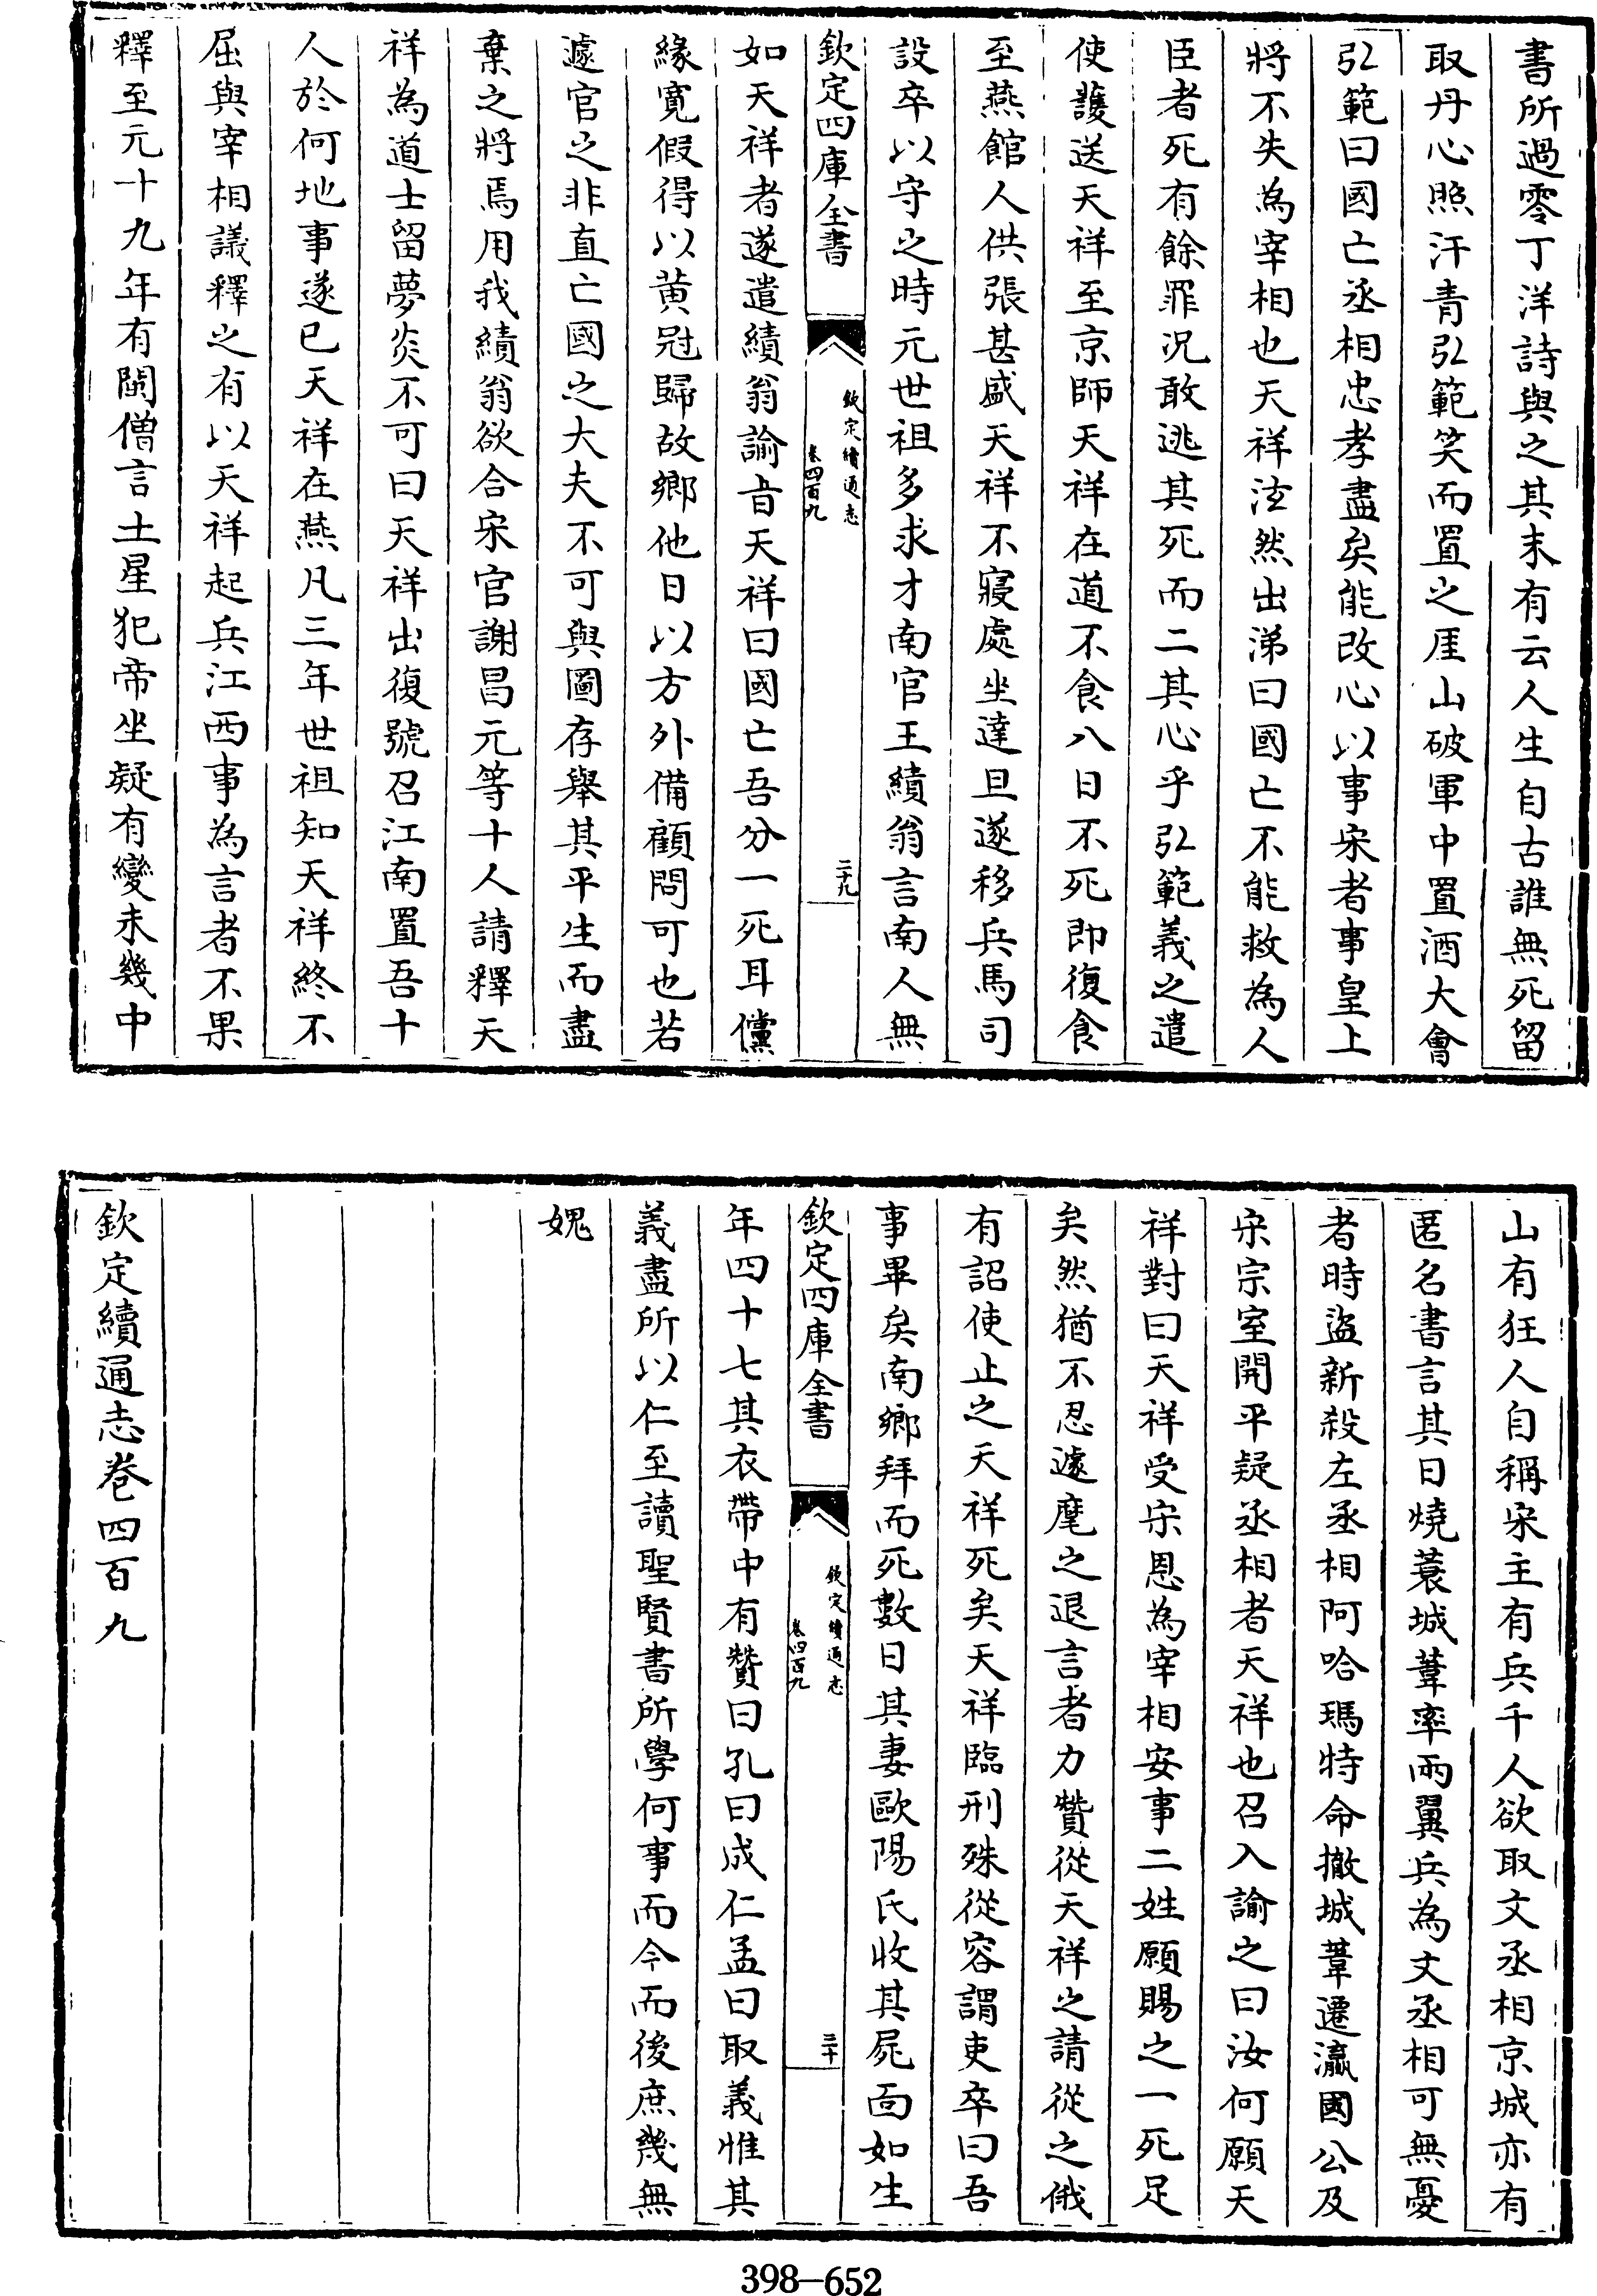 書所過零丁洋詩與之其末有云人生自古誰無死留
取丹心照汗青弘範笑而置之厓山破軍中置酒大會
弘範曰國亡丞相忠孝盡矣能改心以事宋者事皇上
將不失為宰相也天祥泫然出涕曰國亡不能救為人
臣者死有餘罪况敢逃其死而二其心乎弘範義之遣
使護送天祥至京師天祥在道不食八日不死即復食
至燕館人供張甚盛天祥不寢處坐達旦遂移兵馬司
設卒以守之時元世祖多求才南官王績翁言南人無
欽定四庫全書
欽定續通志
卷四百九
二十九
如天祥者遂遣績翁諭旨天祥曰國亡吾分一死耳儻
緣寬假得以黄冠歸故鄉他日以方外備顧問可也若
遽官之非直亡國之大夫不可與圖存舉其平生而盡
棄之將焉用我績翁欲合宋官謝昌元等十人請釋天
祥為道士留夢炎不可曰天祥出復號召江南置吾十
人於何地事遂已天祥在燕凡三年世祖知天祥終不
屈與宰相議釋之有以天祥起兵江西事為言者不果
釋至元十九年有閩僧言土星犯帝坐疑有變未幾中
山有狂人自稱宋主有兵千人欲取文丞相京城亦有
匿名書言其日燒蓑城葦率兩翼兵為丈丞相可無憂
者時盜新殺左丞相阿哈瑪特命撤城葦遷瀛國公及
宋宗室開平疑丞相者天祥也召入諭之曰汝何願天
祥對曰天祥受宋恩為宰相安事二姓願賜之一死足
矣然猶不忍遽麾之退言者力贊從天祥之請從之俄
有詔使止之天祥死矣天祥臨刑殊從容謂吏卒曰吾
事畢矣南鄉拜而死數日其妻歐陽氏收其屍面如生
欽定四庫全書
欽定續通志
卷四百九
三十
年四十七其衣帶中有贊曰孔曰成仁孟曰取義惟其
義盡所以仁至讀聖賢書所學何事而今而後庶幾無
媿
欽定續通志卷四百九
398-652